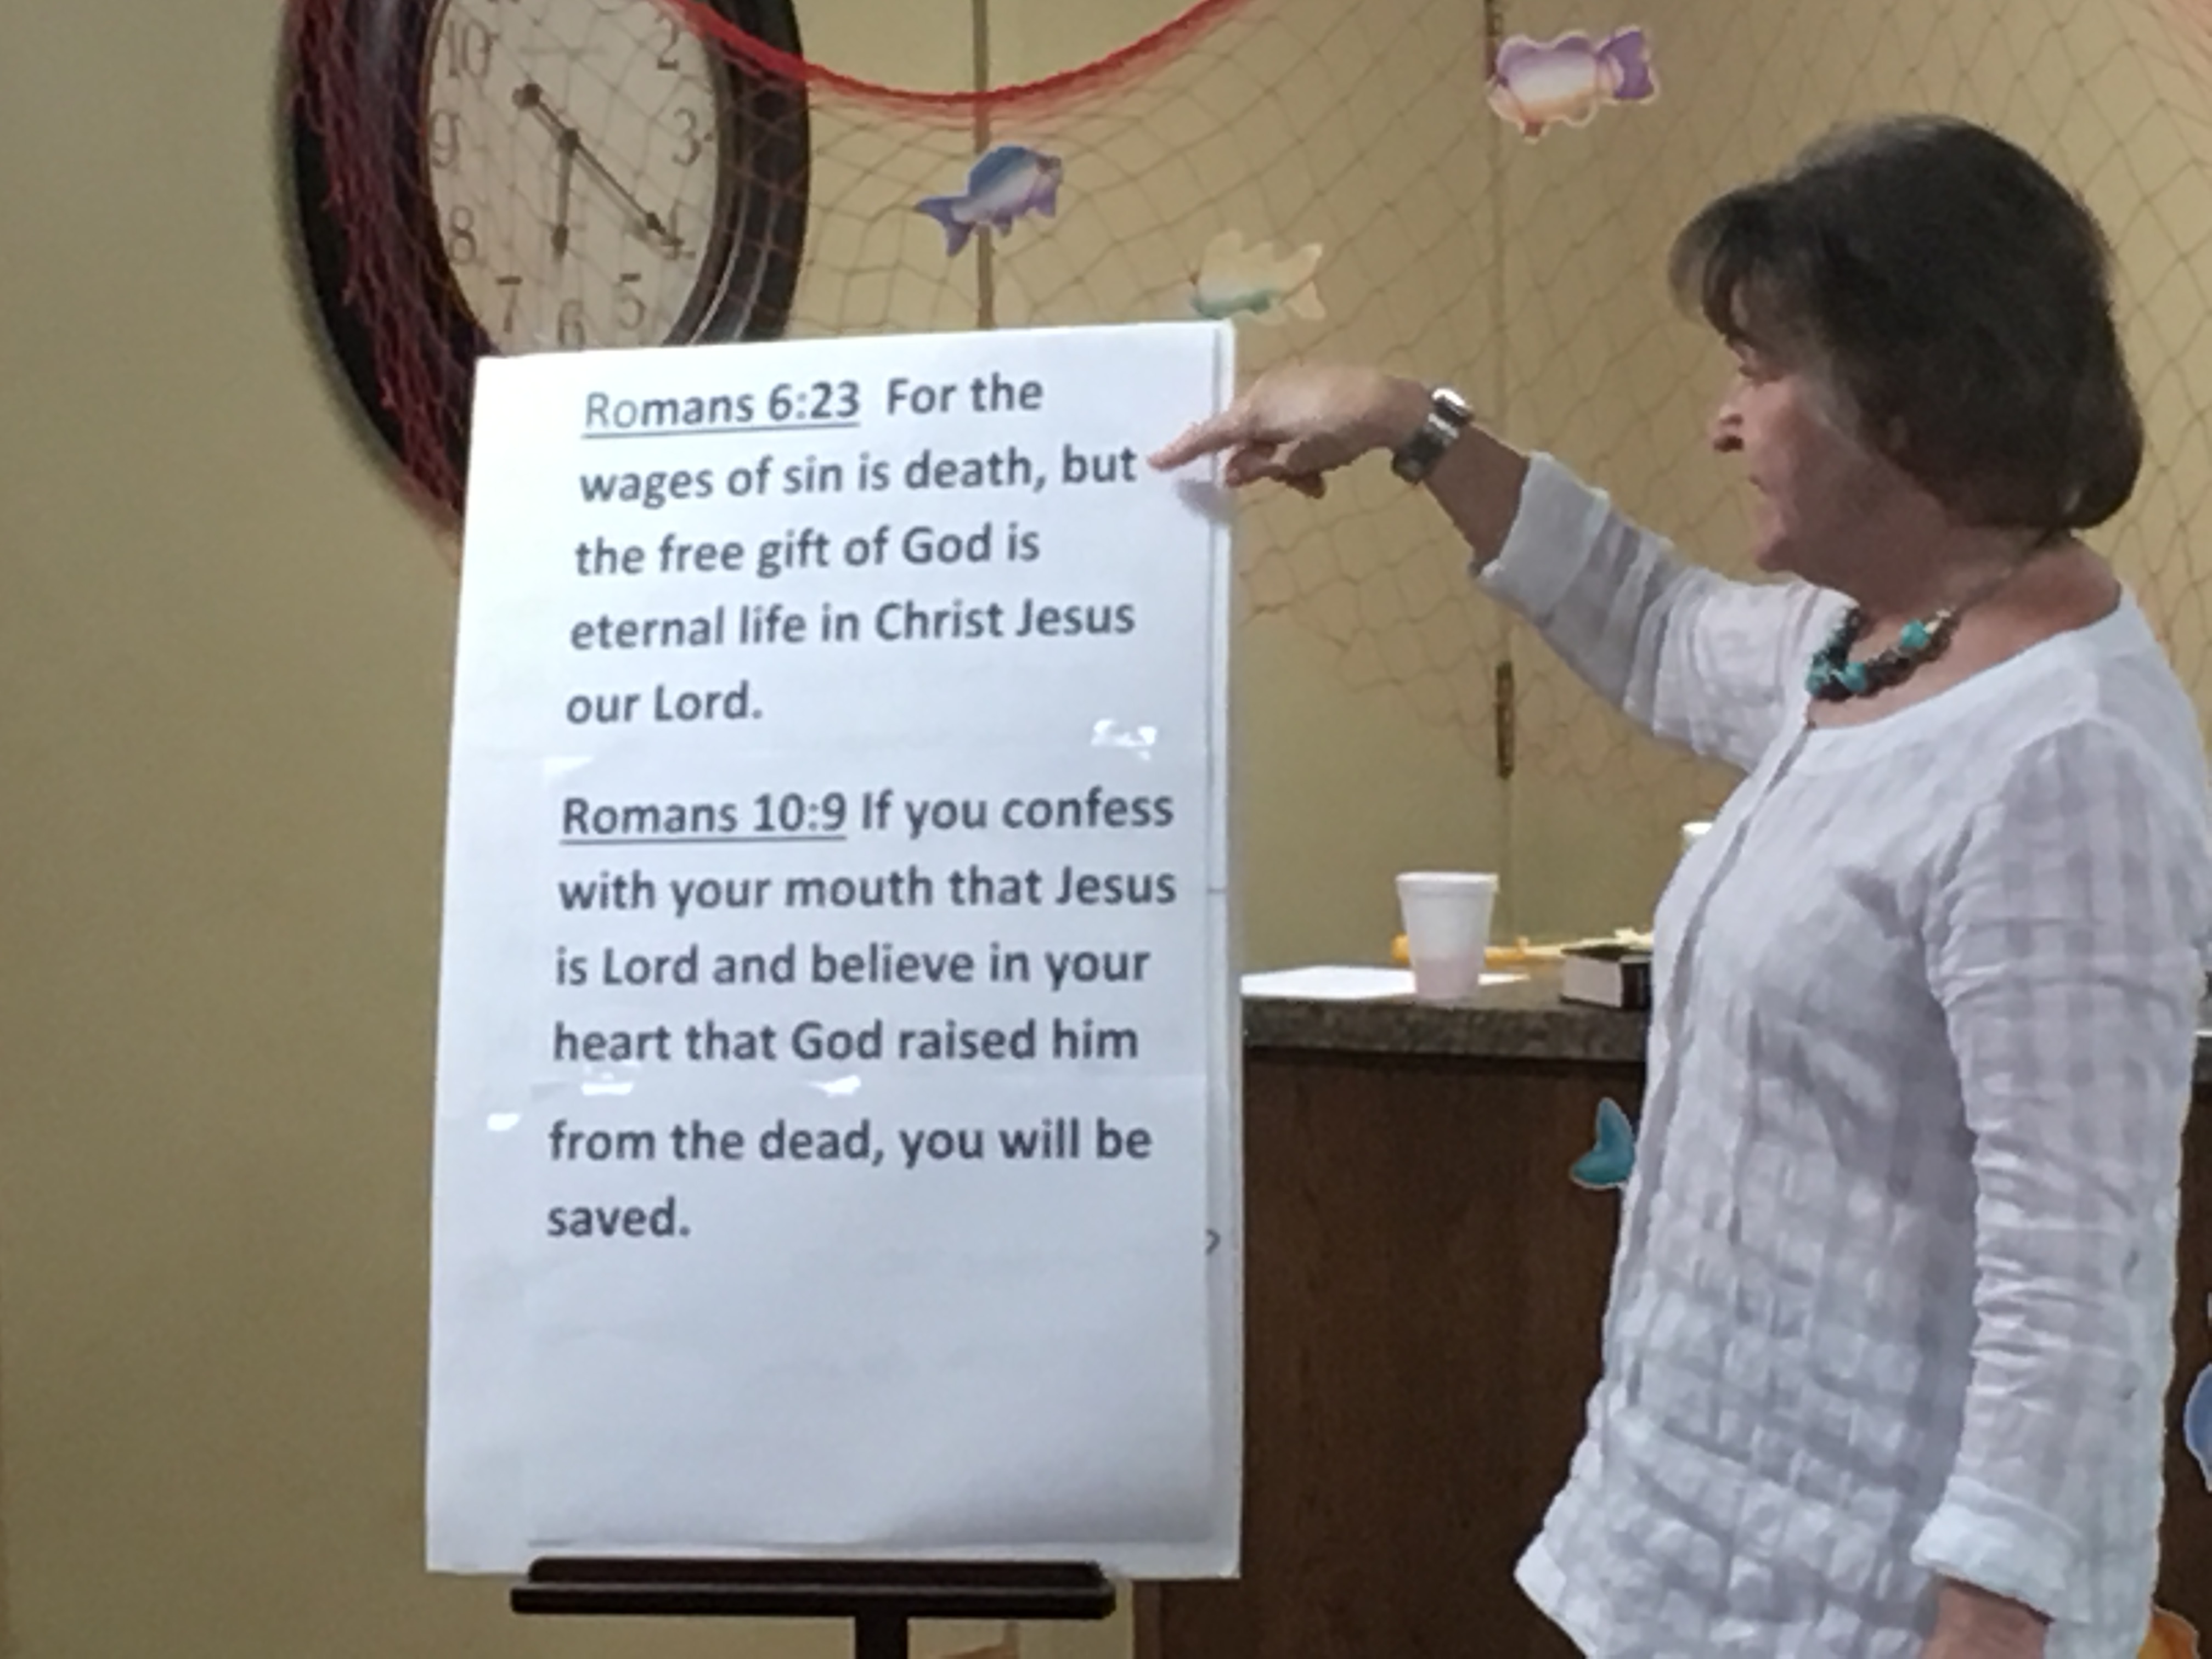 10
2
9
3
8
7
6
5
Romans 6:23 For the
wages of sin is death, but
the free gift of God is
eternal life in Christ Jesus
our Lord.
Romans 10:9 If you confess
with your mouth that Jesus
is Lord and believe in your
heart that God raised him
from the dead, you will be
saved.
?